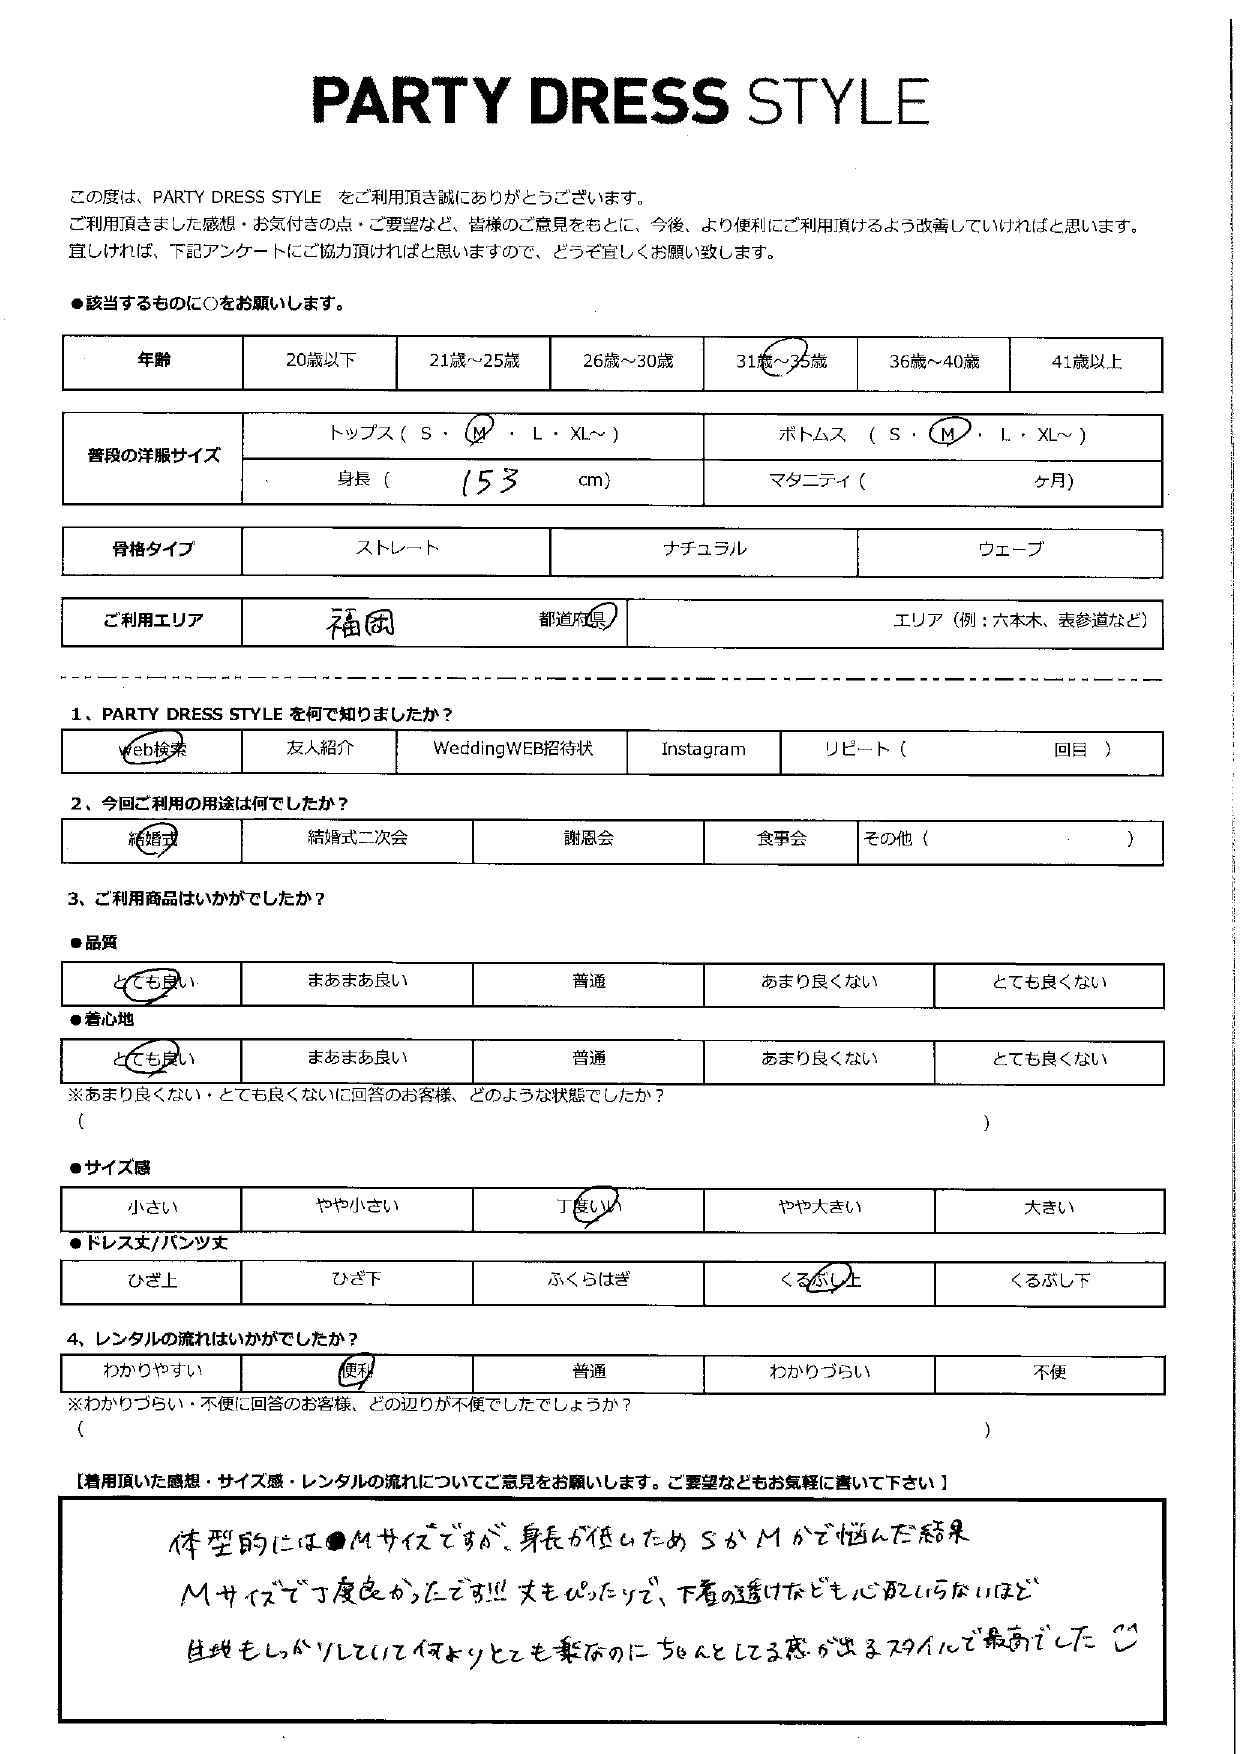 PARTY DRESS STYLE
この度は、PARTY DRESS STYLE をご利用頂き誠にありがとうございます。
ご利用頂きました感想・お気付きの点・ご要望など、皆様のご意見をもとに、今後、より便利にご利用頂けるよう改善していければと思います。
宜しければ、下記アンケートにご協力頂ければと思いますので、どうぞ宜しくお願い致します。
●該当するものに○をお願いします。
年齢 20歳以下 21歳～25歳 26歳～30歳 31歳～35歳 36歳～40歳 41歳以上
普段の洋服サイズ
トップス ( S ・ M ・ L ・ XL～ ) ボトムス ( S ・ M ・ L ・ XL～ )
身長 ( 153 cm) マタニティ ( ヶ月)
骨格タイプ ストレート ナチュラル ウェーブ
ご利用エリア 福岡 都道府県 エリア（例：六本木、表参道など）
1、PARTY DRESS STYLE を何で知りましたか？
web検索 友人紹介 WeddingWEB招待状 Instagram リピート（ 回目 ）
2、今回ご利用の用途は何でしたか？
結婚式 結婚式二次会 謝恩会 食事会 その他（ ）
3、ご利用商品はいかがでしたか？
●品質
とても良い まあまあ良い 普通 あまり良くない とても良くない
●着心地
とても良い まあまあ良い 普通 あまり良くない とても良くない
※あまり良くない・とても良くないに回答のお客様、どのような状態でしたか？
( )
●サイズ感
小さい やや小さい 丁度いい やや大きい 大きい
●ドレス丈/パンツ丈
ひざ上 ひざ下 ふくらはぎ くるぶし上 くるぶし下
4、レンタルの流れはいかがでしたか？
わかりやすい 便利 普通 わかりづらい 不便
※わかりづらい・不便に回答のお客様、どの辺りが不便でしたでしょうか？
( )
【着用頂いた感想・サイズ感・レンタルの流れについてご意見をお願いします。ご要望などもお気軽に書いて下さい】
体型的にはMサイズですが、身長が低いためSかMかで悩んだ結果
Mサイズで丁度良かったです!!! 丈もぴったりで、下着の透けなども心配いらないほど
生地もしっかりしていて何よりとても楽なのにちゃんとしてる感が出るスタイルで最高でした